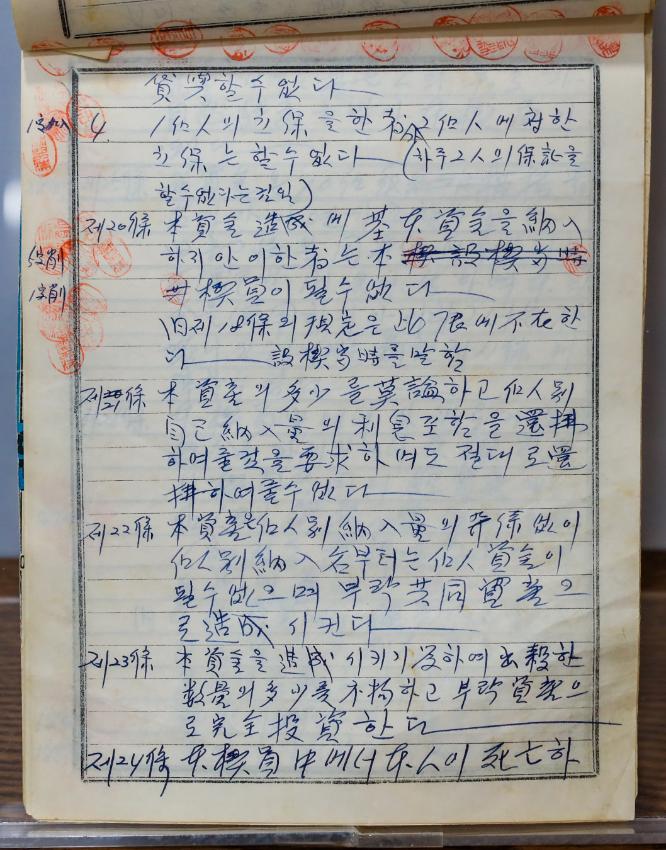 貸與할수없다
1字加入 4. 1個人의 立保을한者가 2個人에 합한
立保는 할수없다 (하주2人의保証을
할수없다는것임)
제20條 本資金 造成에 基本資金을 納入
5字削 하지안이한者는 本
1字削 契員이 될수없다
旧제18條의 規定은 此 7君에不在한
다 設契當時를말함
제21條 本資產의多少를莫論하고個人別
自己納入量의 利息조할을 還拂
하여줄것을要求하며도 절대로還
拂하여줄수없다
제22條 本資產은個人別 納入量의 관係없이
個人別 納入名부터는個人資金이
될수없으며 부락共同資產으
로造成 시킨다
제23條 本資金을 造成시키기 爲하여 出穀한
数量의多少를不拘하고 부락資產으
로完全投資한다
제24條 本契員中에서本人이 死亡하